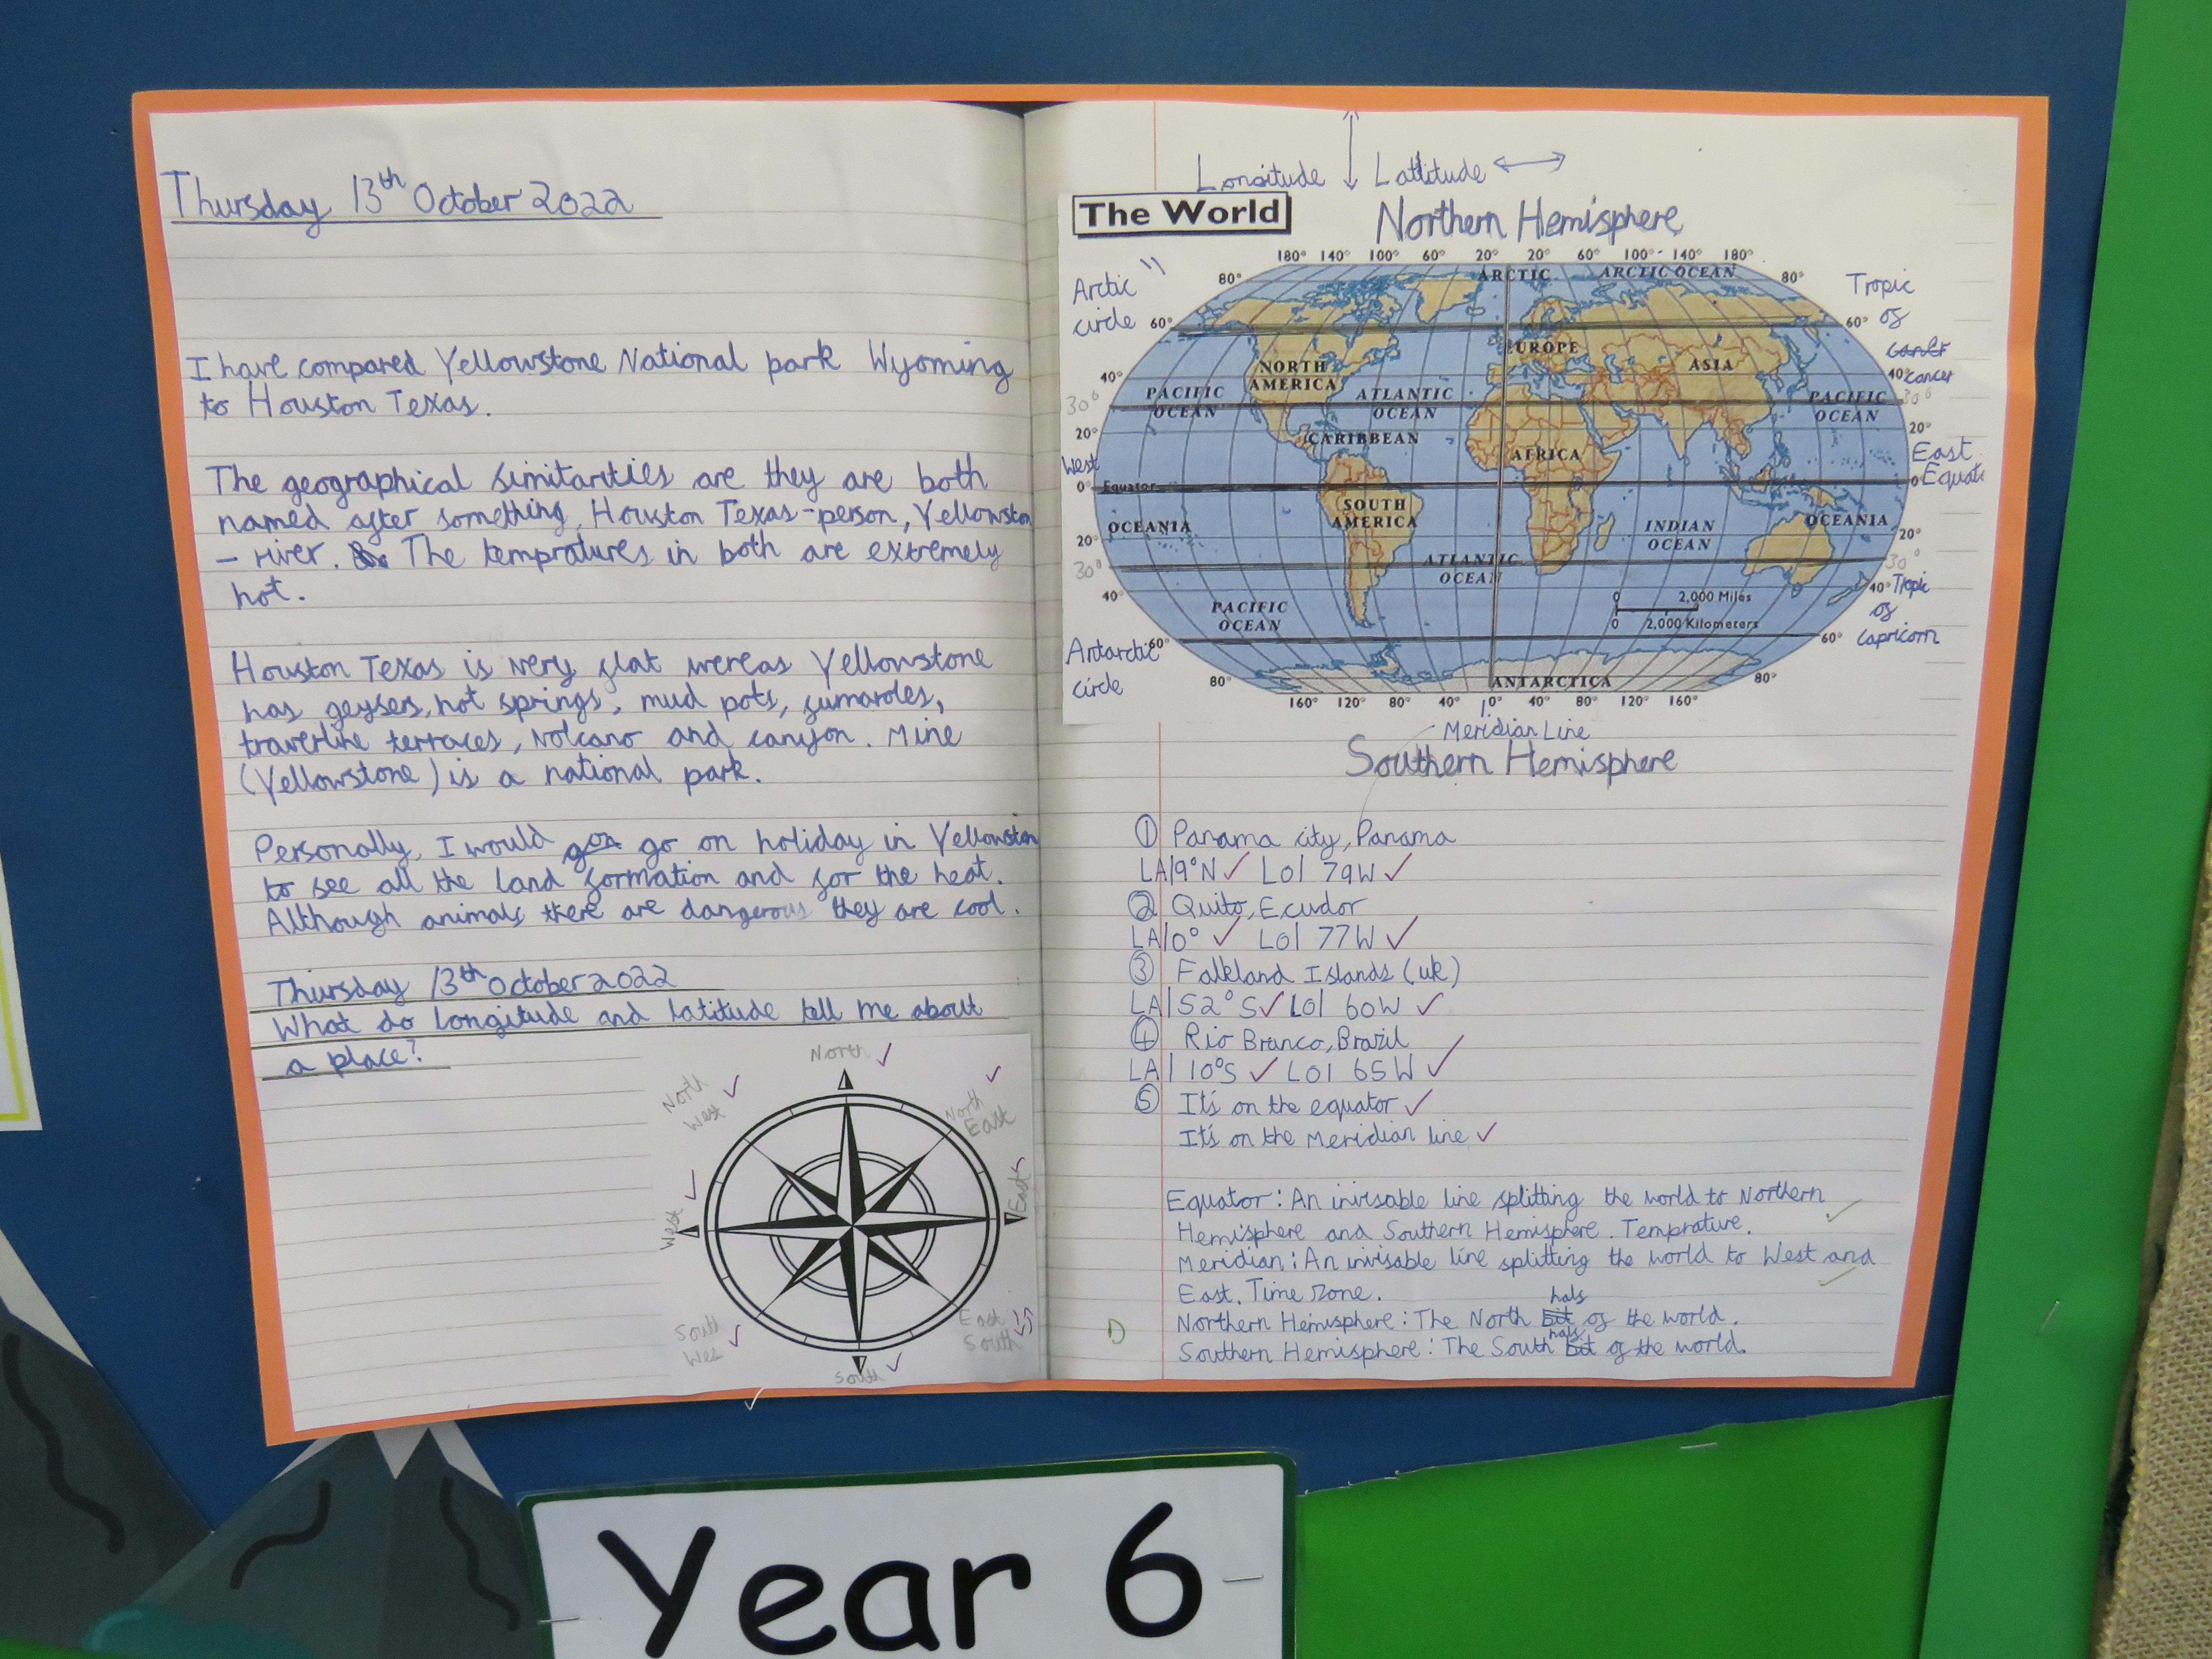 Thursday 13th October 2022
I have compared Yellowstone National park Wyoming
to Houston Texas.
The geographical similarities are they are both
named after something, Houston Texas-person, Yellowston
- river. The tempratures in both are extremely
hot.
Houston Texas is very flat wereas Yellowstone
has geysers, hot springs, mud pots, fumaroles,
travertine terraces, volcano and canyon. Mine
(Yellowstone) is a national park.
Personally, I would go on holiday in Yellowston
to see all the land formation and for the heat.
Although animals there are dangerous they are cool.
Thursday 13th October 2022
What do longitude and latitude tell me about
a place?
North
North West
North East
West
East
South Wes
East South
South
Longitude Lattitude
The World
Northern Hemisphere
180° 140° 100° 60° 20° 20° 60° 100° 140° 180°
ARCTIC ARCTIC OCEAN
80° 80°
Arctic circle
Tropic of cancer
60° 60°
EUROPE
NORTH AMERICA
ASIA
40° 40°
PACIFIC OCEAN
ATLANTIC OCEAN
PACIFIC OCEAN
30° 30°
20° 20°
CARIBBEAN
West
East
AFRICA
0° Equator 0° Equat
SOUTH AMERICA
OCEANIA
INDIAN OCEAN
OCEANIA
20° 20°
30° 30°
ATLANTIC OCEAN
40° 40°
Tropic of Capricorn
PACIFIC OCEAN
0 2,000 Miles
0 2,000 Kilometers
60° 60°
Antarctic circle
80° 80°
ANTARCTICA
160° 120° 80° 40° 0° 40° 80° 120° 160°
Meridian Line
Southern Hemisphere
① Panama city, Panama
LA|9°N ✓ LO| 79W ✓
② Quito, Ecudor
LA|0° ✓ LO| 77W ✓
③ Falkland Islands (uk)
LA|52°S ✓ LO| 60W ✓
④ Rio Branco, Brazil
LA| 10°S ✓ LO| 65W ✓
⑤ It's on the equator ✓
It's on the Meridian line ✓
Equator: An invisable line splitting the world to Northern
Hemisphere and Southern Hemisphere. Temprature.
Meridian: An invisable line splitting the world to West and
East. Time zone.
Northern Hemisphere: The North bit half of the world.
Southern Hemisphere: The South bit half of the world.
Year 6